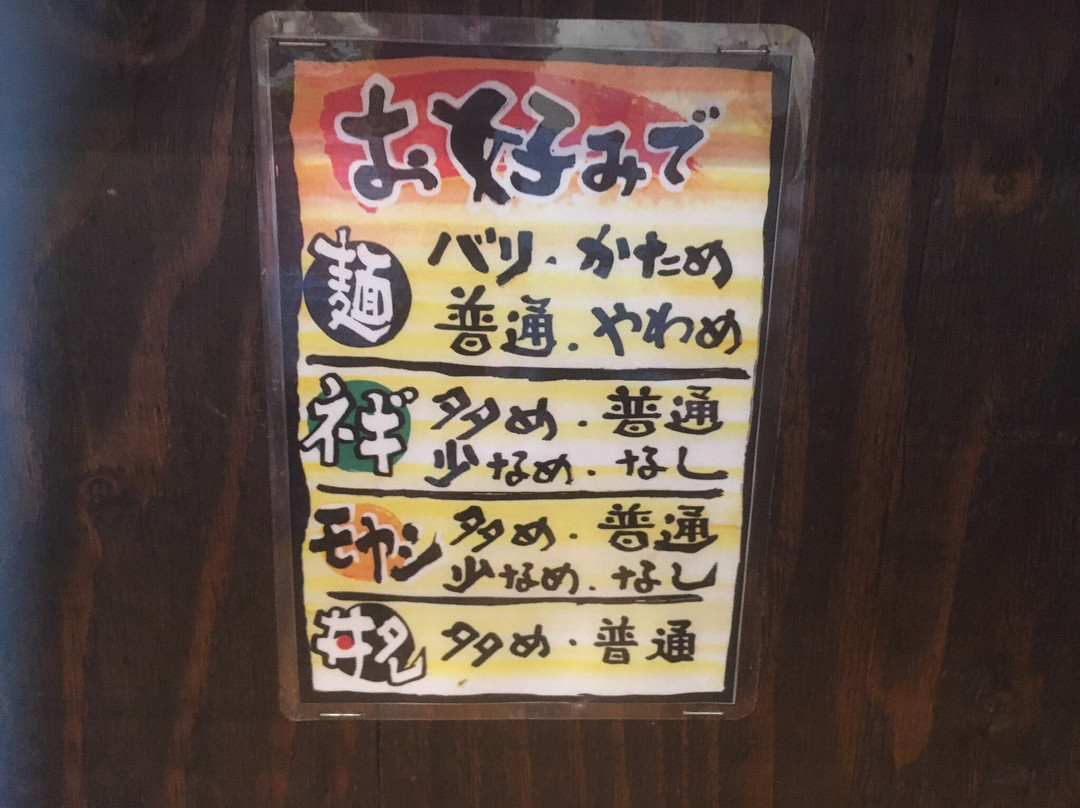 お好みで
麺
バリ・かため
普通・やわめ
ネギ
多め・普通
少なめ・なし
モヤシ
多め・普通
少なめ・なし
丼タレ
多め・普通